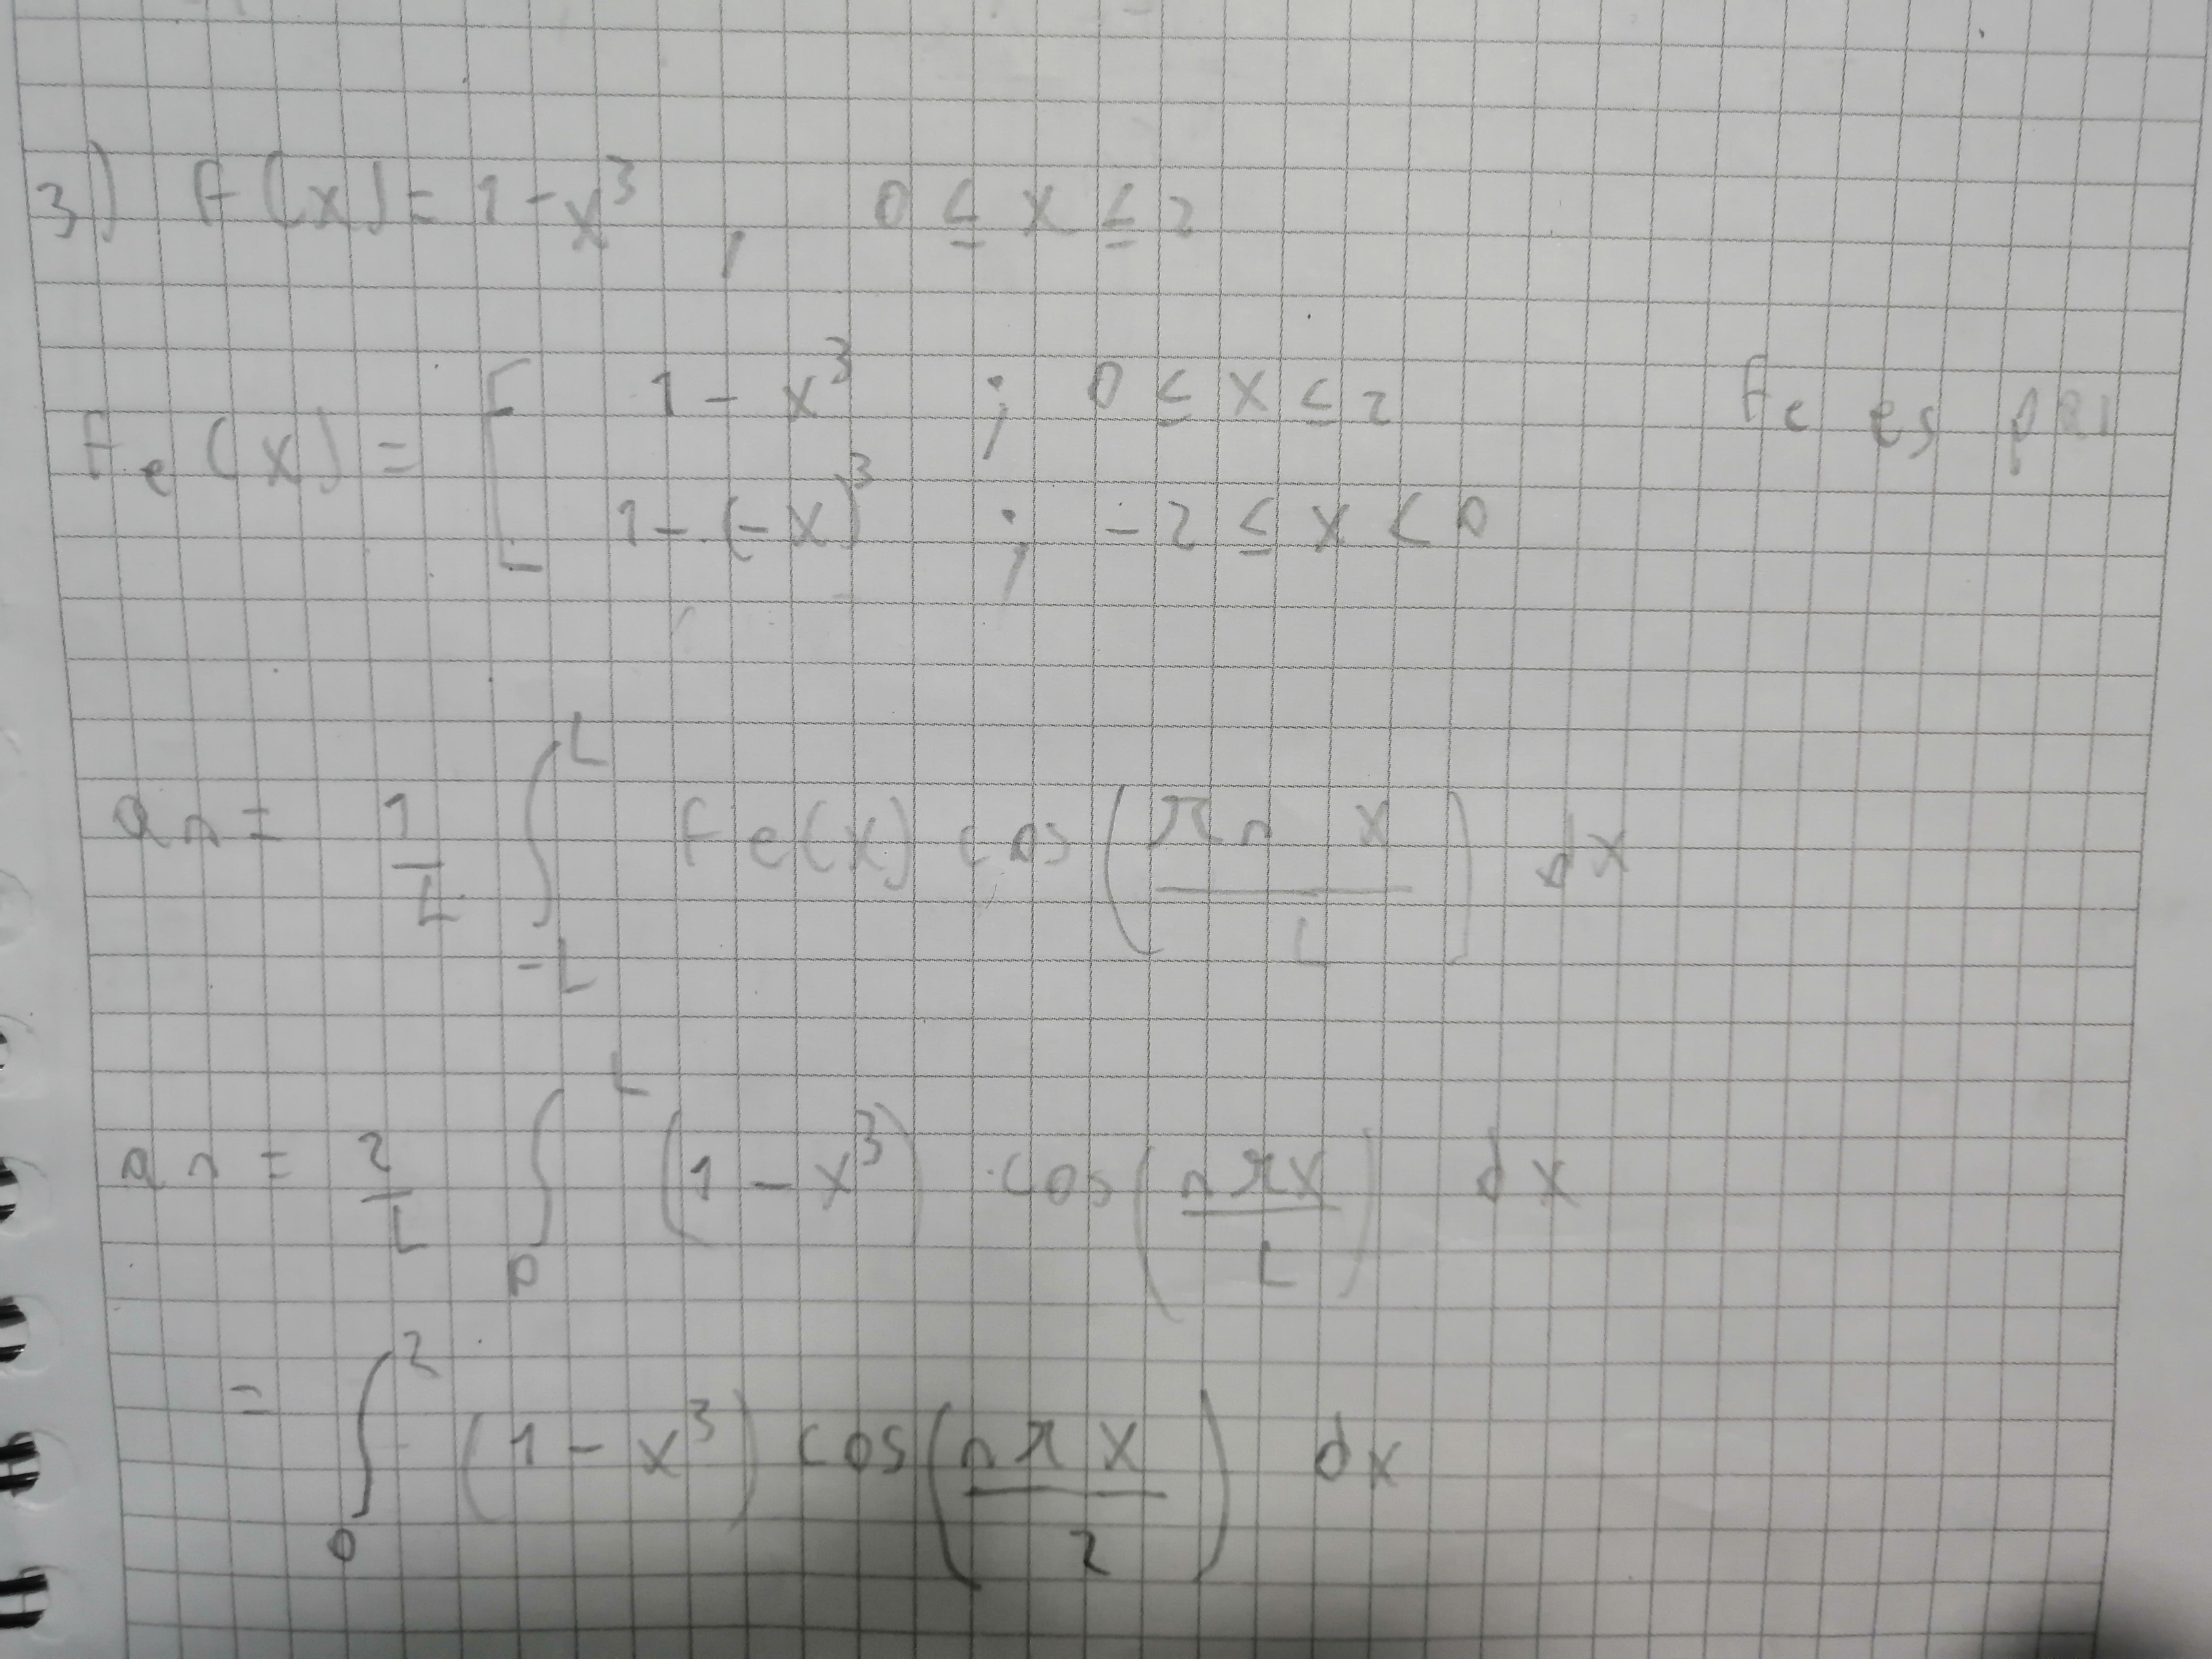 3) f(x) = 1 - x³ , 0 ≤ x ≤ 2
fe(x) = [ 1 - x³ ; 0 ≤ x ≤ 2 fe es par
1 - (-x)³ ; -2 ≤ x < 0
an = 1/L ∫_{-L}^{L} fe(x) cos(πn x / L) dx
an = 2/L ∫_0^L (1 - x³) · cos(nπx / L) dx
= ∫_0^2 (1 - x³) cos(nπ x / 2) dx